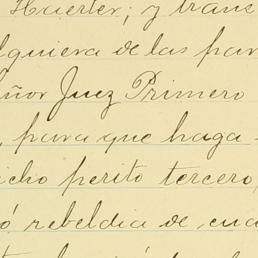 Huerter; y trans
lquiera de las par
eñor Juez Primero
, para que haga
icho perito tercero,
ó rebeldia de, cua